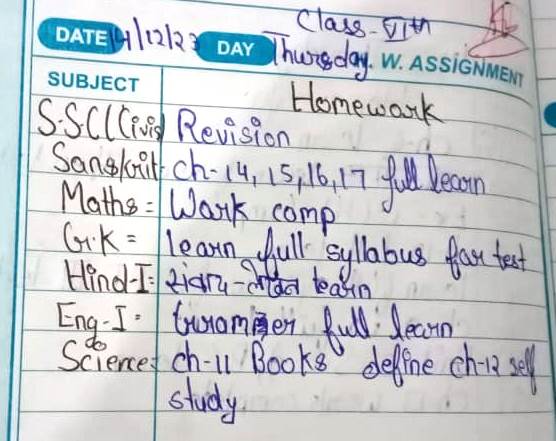 Class-VIth
DATE 14/12/23 DAY Thursday. W. ASSIGNMENT
SUBJECT Homework
S.SC((Civis) Revision
Sanskrit- ch-14, 15, 16, 17 full learn
Maths = Work comp
G.K = learn full syllabus for test
Hind-I: संवाद-लेखन learn
Eng-I- Gurammer full learn
do
Science: ch-11 Books define ch-12 self
study